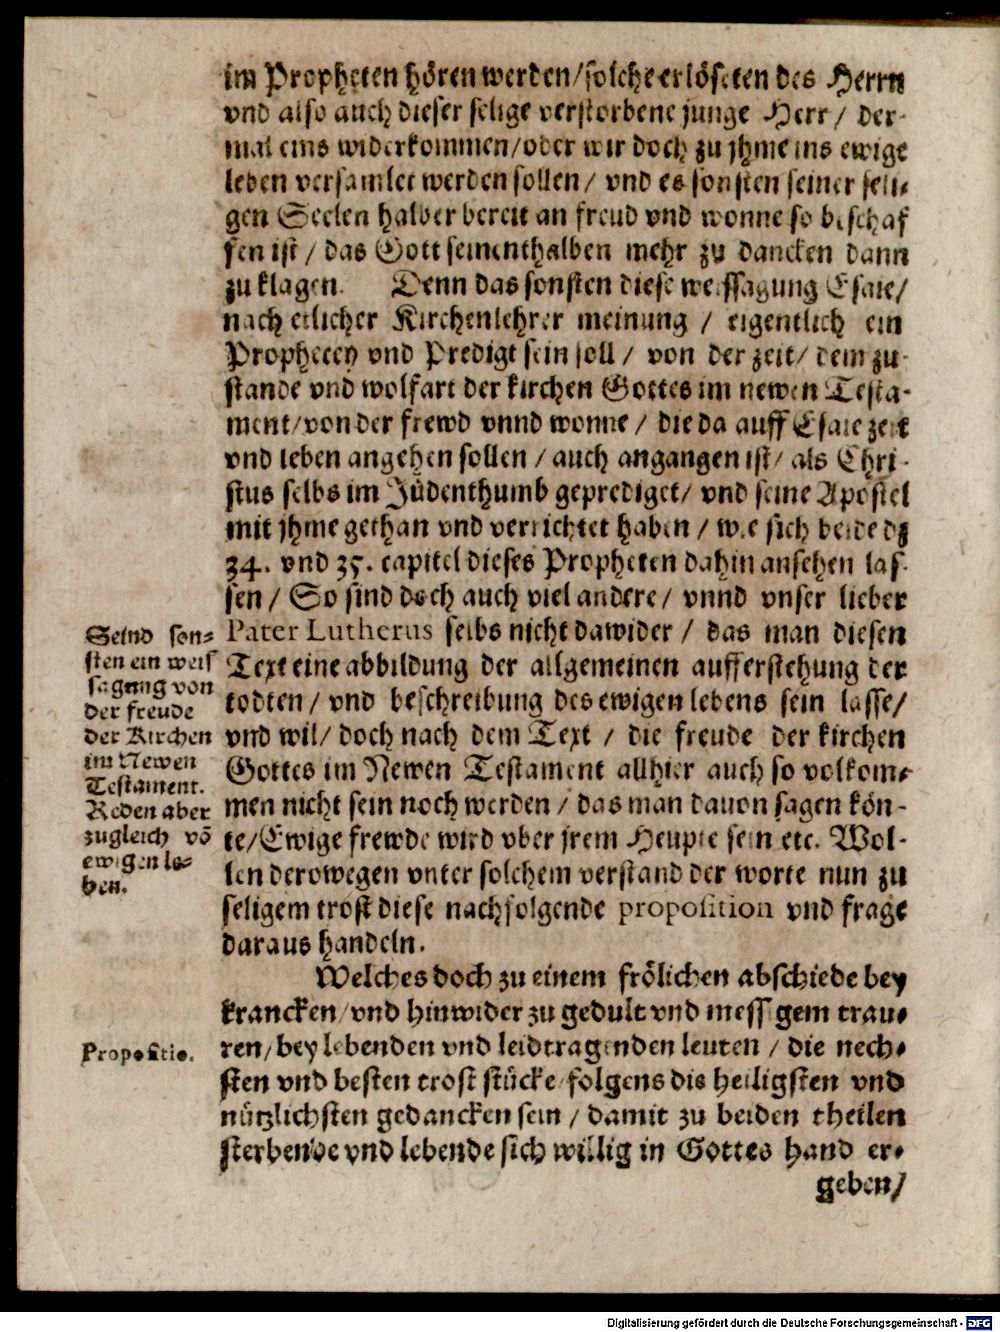 im Propheten hören werden/solche erlöseten des Herrn
vnd also auch dieser selige verstorbene junge Herr/ der-
mal eins widerkommen/oder wir doch zu jhme ins ewige
leben versamlet werden sollen/ vnd es sonsten seiner seli-
gen Seelen halber bereit an freud vnd wonne so beschaf
fen ist/ das Gott seinenthalben mehr zu dancken dann
zu klagen. Denn das sonsten diese weissagung Esaie/
nach etlicher Kirchenlehrer meinung / eigentlich ein
Prophecey vnd Predigt sein soll/ von der zeit/ dem zu-
stande vnd wolfart der kirchen Gottes im newen Testa-
ment/von der frewd vnnd wonne/ die da auff Esaie zeit
vnd leben angehen sollen/auch angangen ist/ als Chri-
stus selbs im Jüdenthumb geprediget/ vnd seine Apostel
mit jhme gethan vnd verrichtet haben/ wie sich beide dz
34. vnd 35. capitel dieses Propheten dahin ansehen las-
sen/ So sind doch auch viel andere/ vnnd vnser lieber
Pater Lutherus selbs nicht dawider/ das man diesen
Text eine abbildung der allgemeinen aufferstehung der
todten/ vnd beschreibung des ewigen lebens sein lasse/
vnd wil/ doch nach dem Text / die freude der kirchen
Gottes im Newen Testament allhier auch so volkom-
men nicht sein noch werden/ das man dauon sagen kön-
te/Ewige frewde wird vber jrem Heupte sein etc. Wol-
len derowegen vnter solchem verstand der worte nun zu
seligem trost diese nachfolgende proposition vnd frage
daraus handeln.
Seind son-
sten ein weis
sagung von
der freude
der Kirchen
im Newen
Testament.
Reden aber
zugleich võ
ewigen le-
ben.
Welches doch zu einem frölichen abschiede bey
krancken/vnd hinwider zu gedult vnd messigem trau-
ren/bey lebenden vnd leidtragenden leuten/ die nech-
sten vnd besten trost stücke/folgens die heiligsten vnd
nützlichsten gedancken sein/ damit zu beiden theilen
sterbende vnd lebende sich willig in Gottes hand er-
geben/
Propositio.
Digitalisierung gefördert durch die Deutsche Forschungsgemeinschaft - DFG